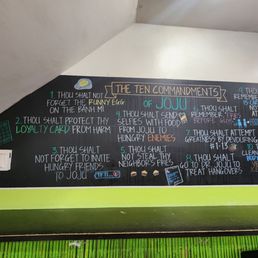 THE TEN COMMANDMENTS
OF JOJU
1. THOU SHALT NOT
FORGET THE RUNNY EGG
ON THE BANH MI
2. THOU SHALT PROTECT THY
LOYALTY CARD FROM HARM
3. THOU SHALT
NOT FORGET TO INVITE
HUNGRY FRIENDS
TO JOJU
4. THOU SHALT SEND
SELFIES WITH FOOD
FROM JOJU TO
HUNGRY ENEMIES
5. THOU SHALT
NOT STEAL THY
NEIGHBOR'S FRIES
THOU SHALT
REMEMBER
FRIES
BEFORE
7. THOU SHALT ATTEMPT
GREATNESS BY DEVOURING
#1-15
8. THOU SHALT
GO TO DR. JOJU TO
TREAT HANGOVERS